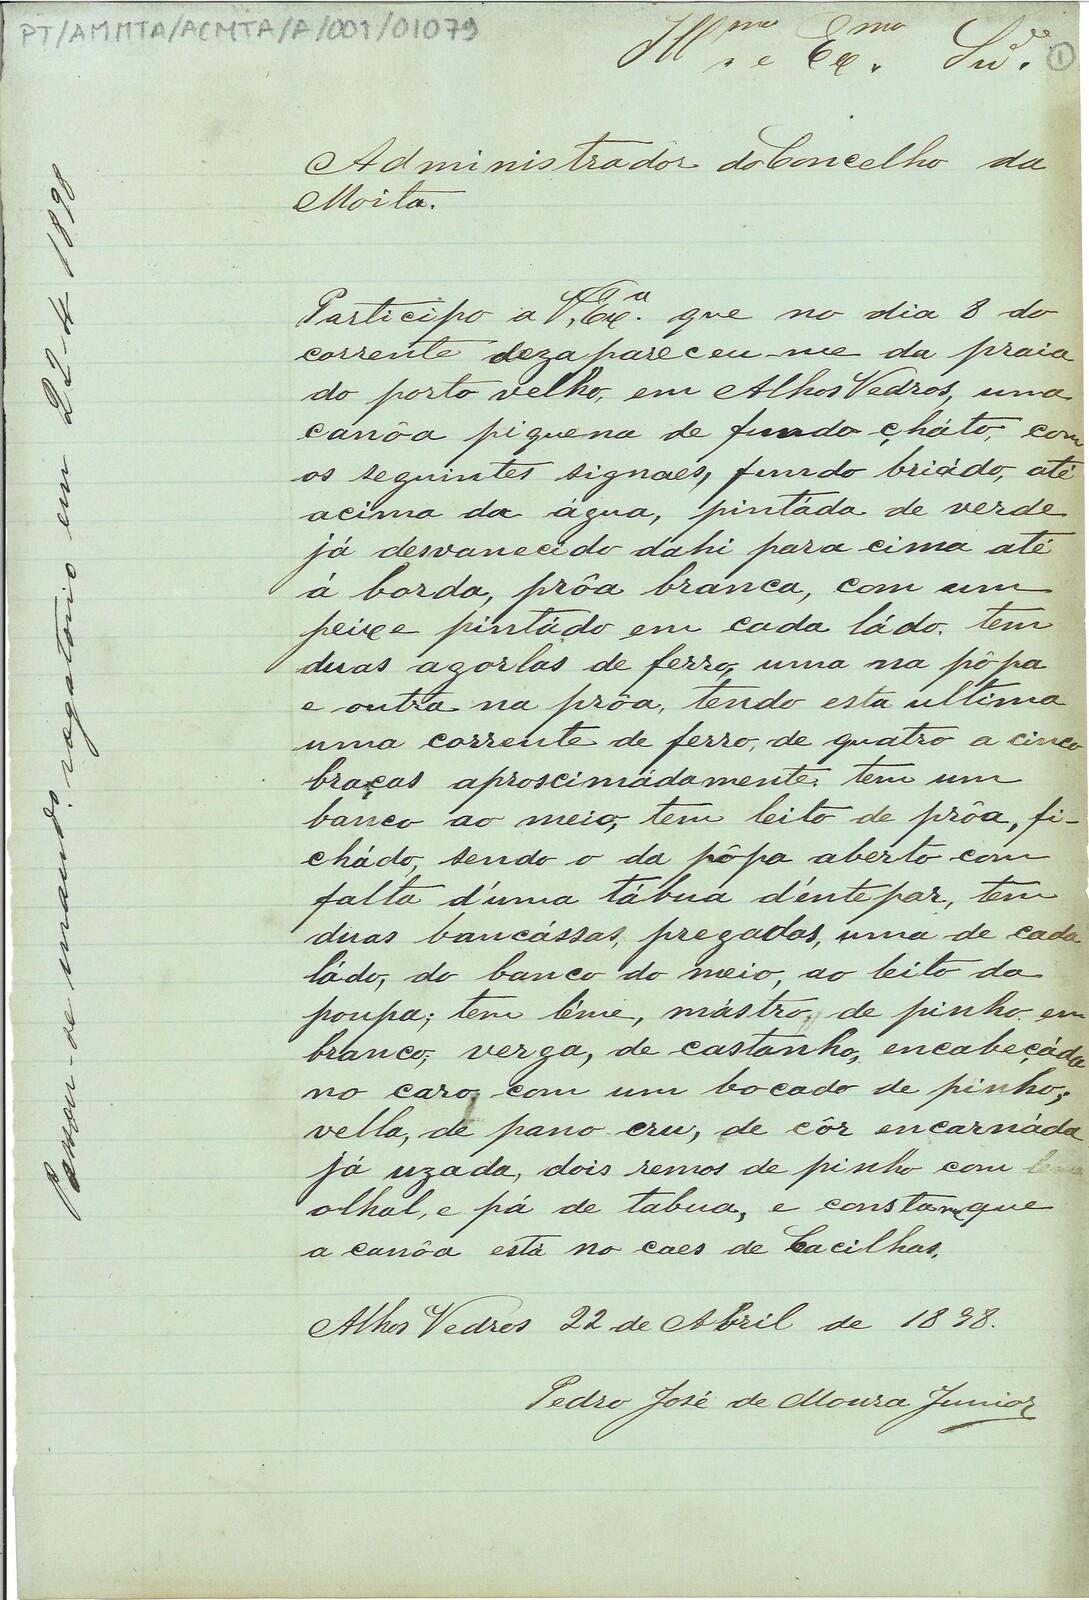 PT/AMMTA/ACMTA/A/001/01079
Ill.mo e Ex.mo Snr.
1
Administradôr do Concelho da
Moita.
Participo a V. Ex.a que no dia 8 do
corrente dezapareceu-me da praia
do porto velho, em Alhos Vedros, uma
canôa piquena de fundo cháto, com
os seguintes signaes, fundo briádo, até
acima da água, pintáda de verde
já desvanecido dahi para cima até
á borda, prôa branca, com um
peixe pintádo em cada ládo. tem
duas agorlas de ferro, uma na pôpa
e outra na prôa, tendo esta ultima
uma corrente de ferro, de quatro a cinco
braças aproscimádamente. tem um
banco ao meio, tem leito de prôa, fi-
chádo, sendo o da pôpa aberto com
falta d'uma tábua d'éntepar, tem
duas bancássas, pregadas, uma de cada
ládo, do banco do meio, ao leito da
poupa; tem léme, mástro, de pinho em
branco, verga, de castanho, encabeçáda
no caro com um bocado de pinho,
vella, de pano cru, de côr encarnáda
já uzada, dois remos de pinho com
olhal, e pá de tabua, e consta-me que
a canôa está no caes de Cacilhas.
Alhos Vedros 22 de Abril de 1898.
Pedro José de Moura Junior
Passou-se mandado rogatorio em 22-4-1898